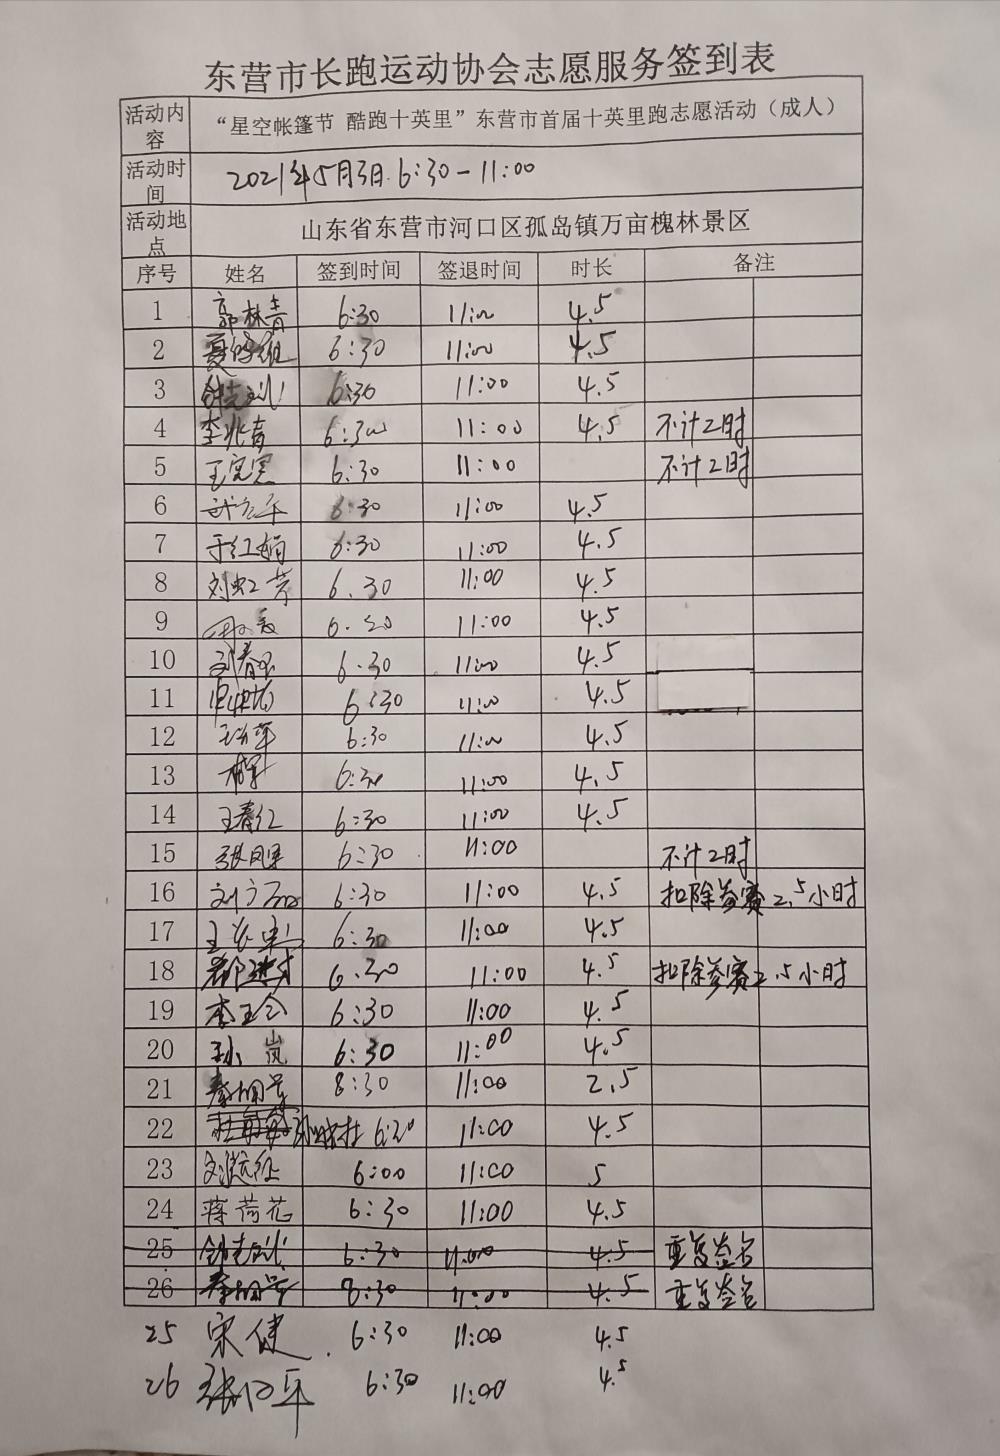 东营市长跑运动协会志愿服务签到表
活动内容 “星空帐篷节 酷跑十英里”东营市首届十英里跑志愿活动（成人）
活动时间 2021年5月3日 6:30-11:00
活动地点 山东省东营市河口区孤岛镇万亩槐林景区
序号 姓名 签到时间 签退时间 时长 备注
1 郭林青 6:30 11:00 4.5
2 6:30 11:00 4.5
3 6:30 11:00 4.5
4 李兆青 6:30 11:00 4.5 不计工时
5 王宪宪 6:30 11:00 不计工时
6 6:30 11:00 4.5
7 于红娟 6:30 11:00 4.5
8 刘虹芳 6.30 11:00 4.5
9 11:00 4.5
10 6.30 11:00 4.5
11 6:30 11:00 4.5
12 6:30 11:00 4.5
13 6:30 11:00 4.5
14 王春红 6:30 11:00 4.5
15 6:30 11:00 不计工时
16 6:30 11:00 4.5 扣除参赛2.5小时
17 6:30 11:00 4.5
18 6.30 11:00 4.5 扣除参赛2.5小时
19 李玉会 6:30 11:00 4.5
20 孙岚 6:30 11:00 4.5
21 8:30 11:00 2.5
22 6:30 11:00 4.5
23 刘远征 6:00 11:00 5
24 蒋荷花 6:30 11:00 4.5
25 6:30 11:00 4.5 重复签名
26 8:30 11:00 4.5 重复签名
25 宋健 6:30 11:00 4.5
26 6:30 11:00 4.5